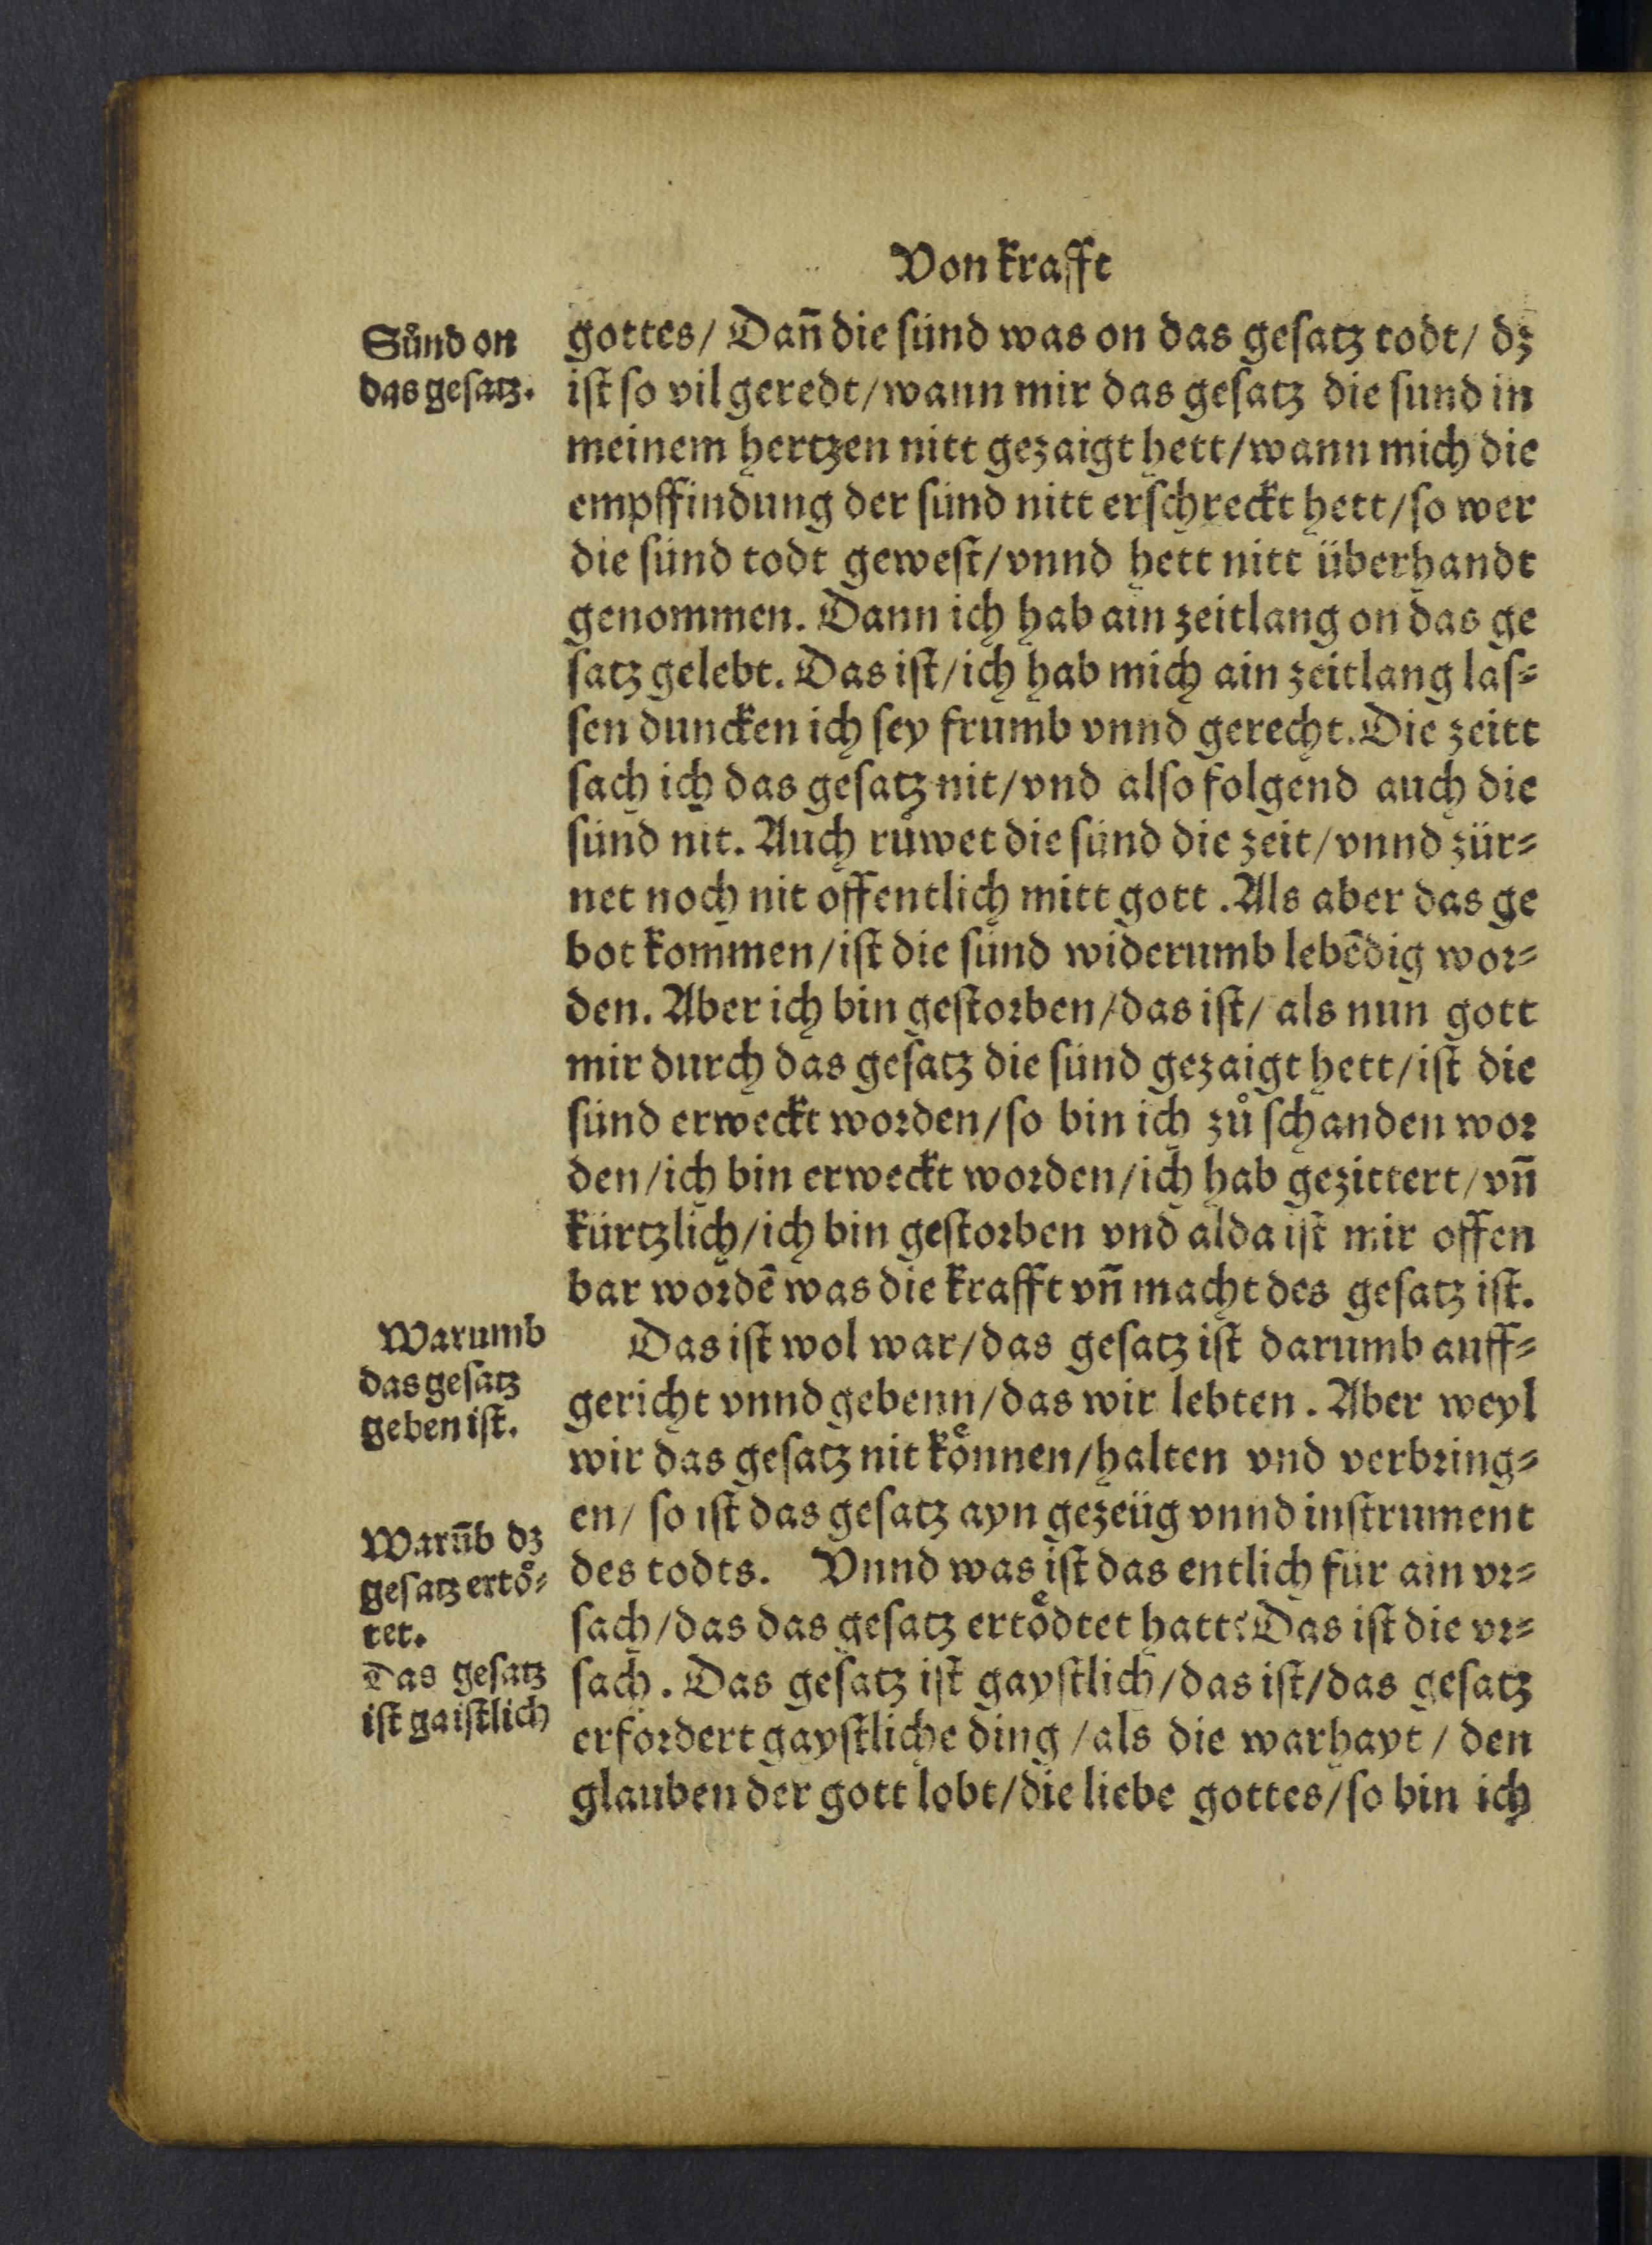 Von krafft
Sůnd on
das gesatz.
gottes/ Dañ die sünd was on das gesatz todt/ dz
ist so vil geredt/wann mir das gesatz die sund in
meinem hertzen nitt gezaigt hett/wann mich die
empffindung der sünd nitt erschreckt hett/so wer
die sünd todt gewest/vnnd hett nitt überhandt
genommen. Dann ich hab ain zeitlang on das ge
satz gelebt. Das ist/ich hab mich ain zeitlang las⸗
sen duncken ich sey frumb vnnd gerecht. Die zeitt
sach ich das gesatz nit/vnd also folgend auch die
sünd nit. Auch růwet die sünd die zeit/vnnd zür⸗
net noch nit öffentlich mitt gott. Als aber das ge
bot kommen/ist die sünd widerumb lebẽdig wor⸗
den. Aber ich bin gestorben/das ist/ als nun gott
mir durch das gesatz die sünd gezaigt hett/ist die
sünd erweckt worden/so bin ich zů schanden wor
den/ich bin erweckt worden/ich hab gezittert/vñ
kürtzlich/ich bin gestorben vnd alda ist mir offen
bar wordẽ was die krafft vñ macht des gesatz ist.
Warumb
das gesatz
geben ist.
Das ist wol war/das gesatz ist darumb auff⸗
gericht vnnd gebenn/das wir lebten. Aber weyl
wir das gesatz nit koͤnnen/halten vnd verbring⸗
en/ so ist das gesatz ayn gezeüg vnnd instrument
Warũb dz
gesatz ertoͤ⸗
tet.
des todts. Vnnd was ist das entlich für ain vr⸗
sach/das das gesatz ertoͤdtet hatt? Das ist die vr⸗
Das gesatz
ist gaistlich
sach. Das gesatz ist gaystlich/das ist/das gesatz
erfordert gaystliche ding/als die warhayt/ den
glauben der gott lobt/die liebe gottes/so bin ich